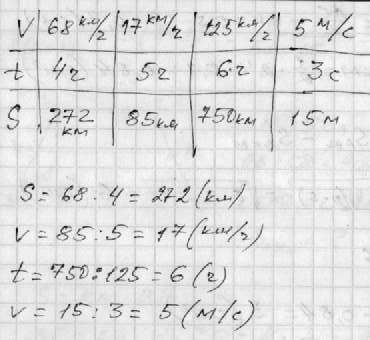 V 68 км/ч 17 км/ч 125 км/ч 5 м/с
t 4ч 5ч 6ч 3с
S 272 км 85км 750км 15м
S = 68 · 4 = 272 (км)
v = 85 : 5 = 17 (км/ч)
t = 750 : 125 = 6 (ч)
v = 15 : 3 = 5 (м/с)